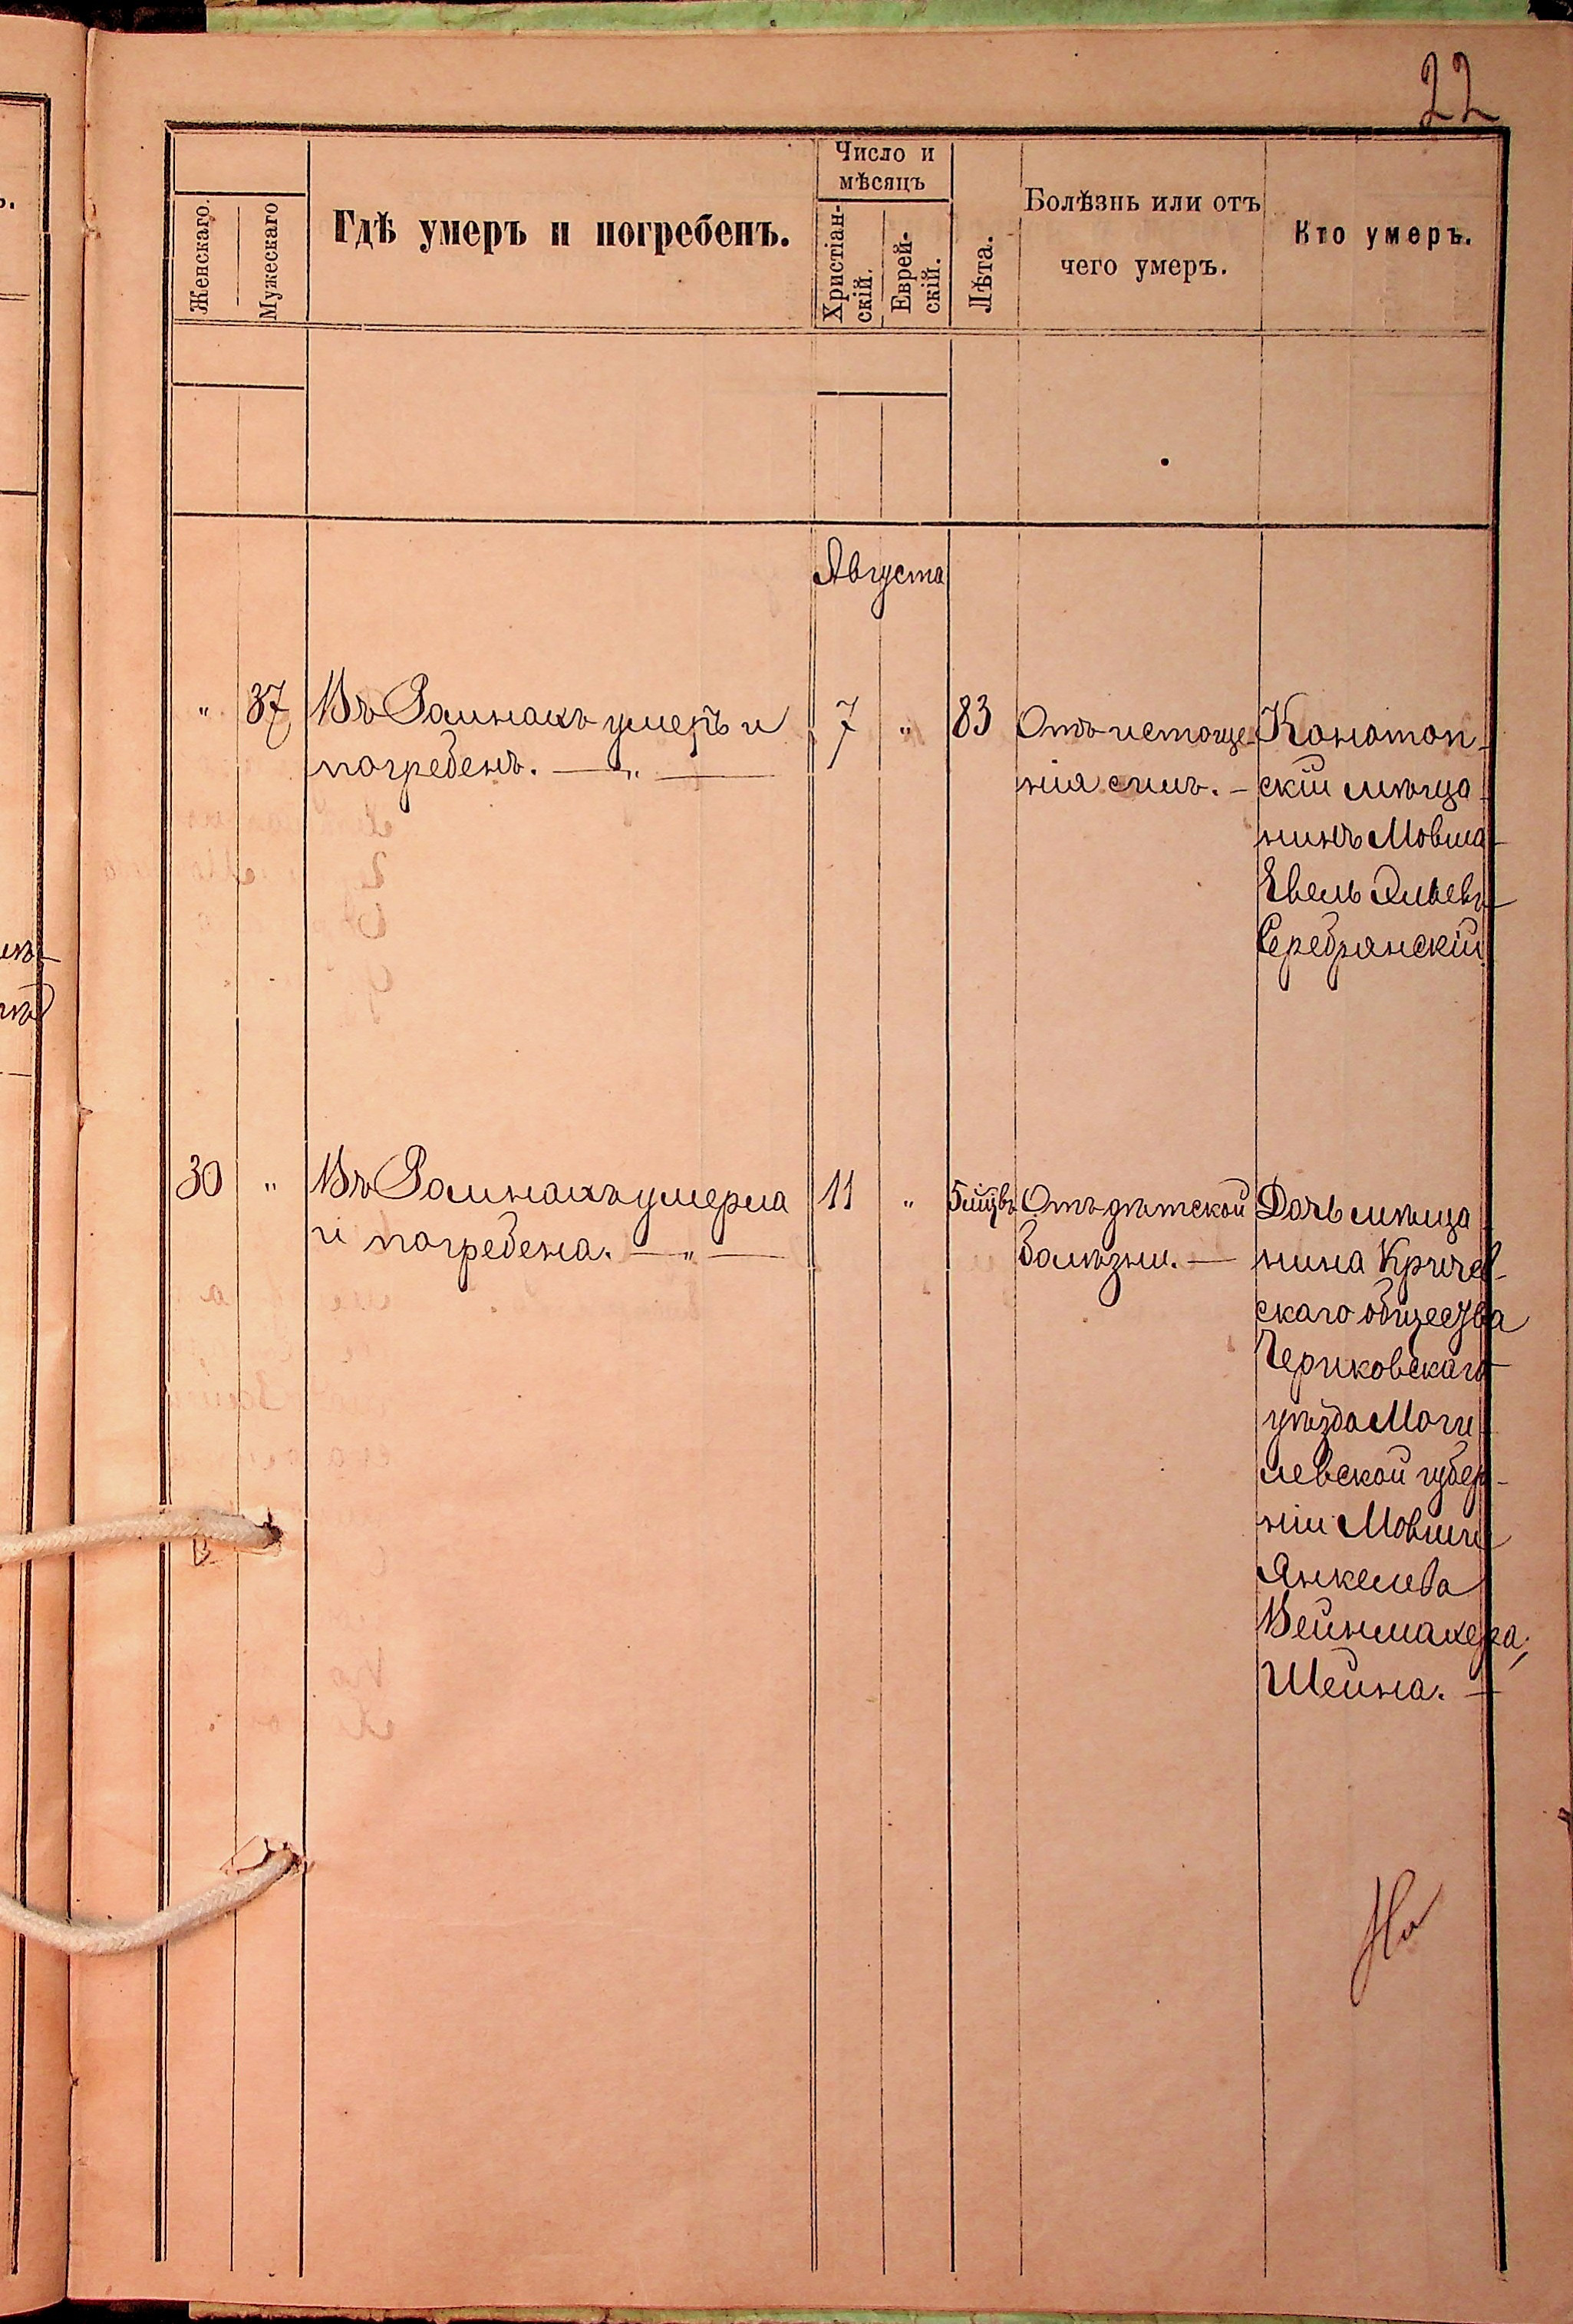 22
Женскаго.
Мужескаго
Гдѣ умеръ и погребенъ.
Число и
мѣсяцъ
Христіан-
скій.
Еврей-
скій.
Лѣта.
Болѣзнь или отъ
чего умеръ.
Кто умеръ.
Августа
" 37 Въ Ромнахъ умеръ и
погребенъ. — " —
7 " 83
Отъ истоще-
нія силъ. —
Конотоп-
скій мѣща-
нинъ Мовша-
Евель
Серебрянскій
30 " Въ Ромнахъ умерла
и погребена. — " —
11 " 5 мцѣвъ
Отъ дѣтской
болѣзни. —
Дочь мѣща-
нина Кричев-
скаго общества
Чериковскаго
уѣзда Моги-
левской губер-
ніи Мовши
Янкелева
Вейнмахера,
Шейна. —